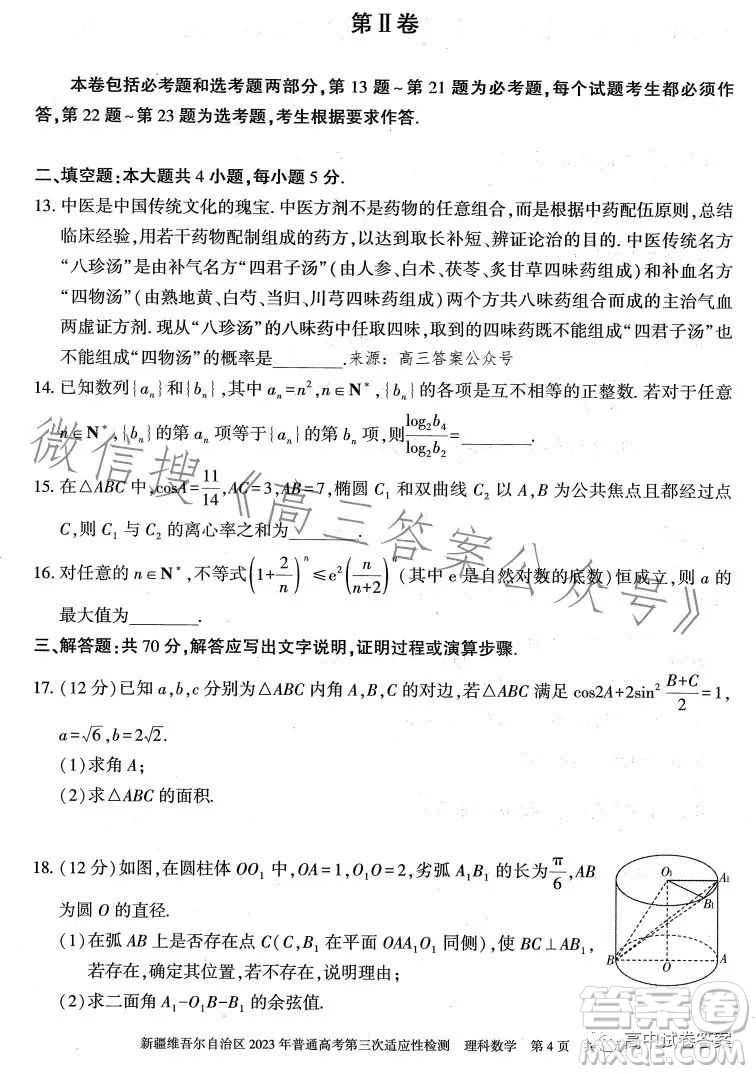 第Ⅱ卷
本卷包括必考题和选考题两部分,第 13 题~第 21 题为必考题,每个试题考生都必须作
答,第 22 题~第 23 题为选考题,考生根据要求作答.
二、填空题:本大题共 4 小题,每小题 5 分.
13. 中医是中国传统文化的瑰宝. 中医方剂不是药物的任意组合,而是根据中药配伍原则,总结
临床经验,用若干药物配制组成的药方,以达到取长补短、辨证论治的目的. 中医传统名方
“八珍汤”是由补气名方“四君子汤”(由人参、白术、茯苓、炙甘草四味药组成)和补血名方
“四物汤”(由熟地黄、白芍、当归、川芎四味药组成)两个方共八味药组合而成的主治气血
两虚证方剂. 现从“八珍汤”的八味药中任取四味,取到的四味药既不能组成“四君子汤”也
不能组成“四物汤”的概率是________. 来源:高三答案公众号
14. 已知数列{aₙ}和{bₙ},其中 aₙ=n²,n∈N*,{bₙ}的各项是互不相等的正整数. 若对于任意
n∈N*,{bₙ}的第 aₙ 项等于{aₙ}的第 bₙ 项,则 log₂b₄/log₂b₂=________.
15. 在△ABC 中,cosA=11/14,AC=3,AB=7,椭圆 C₁ 和双曲线 C₂ 以 A,B 为公共焦点且都经过点
C,则 C₁ 与 C₂ 的离心率之和为________.
16. 对任意的 n∈N*,不等式(1+2/n)ⁿ≤e²(n/(n+2))ᵃ(其中 e 是自然对数的底数)恒成立,则 a 的
最大值为________.
三、解答题:共 70 分,解答应写出文字说明,证明过程或演算步骤.
17. (12 分)已知 a,b,c 分别为△ABC 内角 A,B,C 的对边,若△ABC 满足 cos2A+2sin² (B+C)/2=1,
a=√6,b=2√2.
(1)求角 A;
(2)求△ABC 的面积.
18. (12 分)如图,在圆柱体 OO₁ 中,OA=1,O₁O=2,劣弧 A₁B₁ 的长为 π/6,AB
为圆 O 的直径.
(1)在弧 AB 上是否存在点 C(C,B₁ 在平面 OAA₁O₁ 同侧),使 BC⊥AB₁,
若存在,确定其位置,若不存在,说明理由;
(2)求二面角 A₁-O₁B-B₁ 的余弦值.
O₁
A₁
B₁
B
O
A
新疆维吾尔自治区 2023 年普通高考第三次适应性检测 理科数学 第 4 页
微信搜《高三答案公众号》
答案卷
高中试卷答案